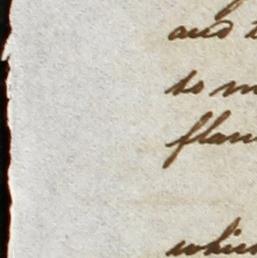 and t
to m
flan
whic